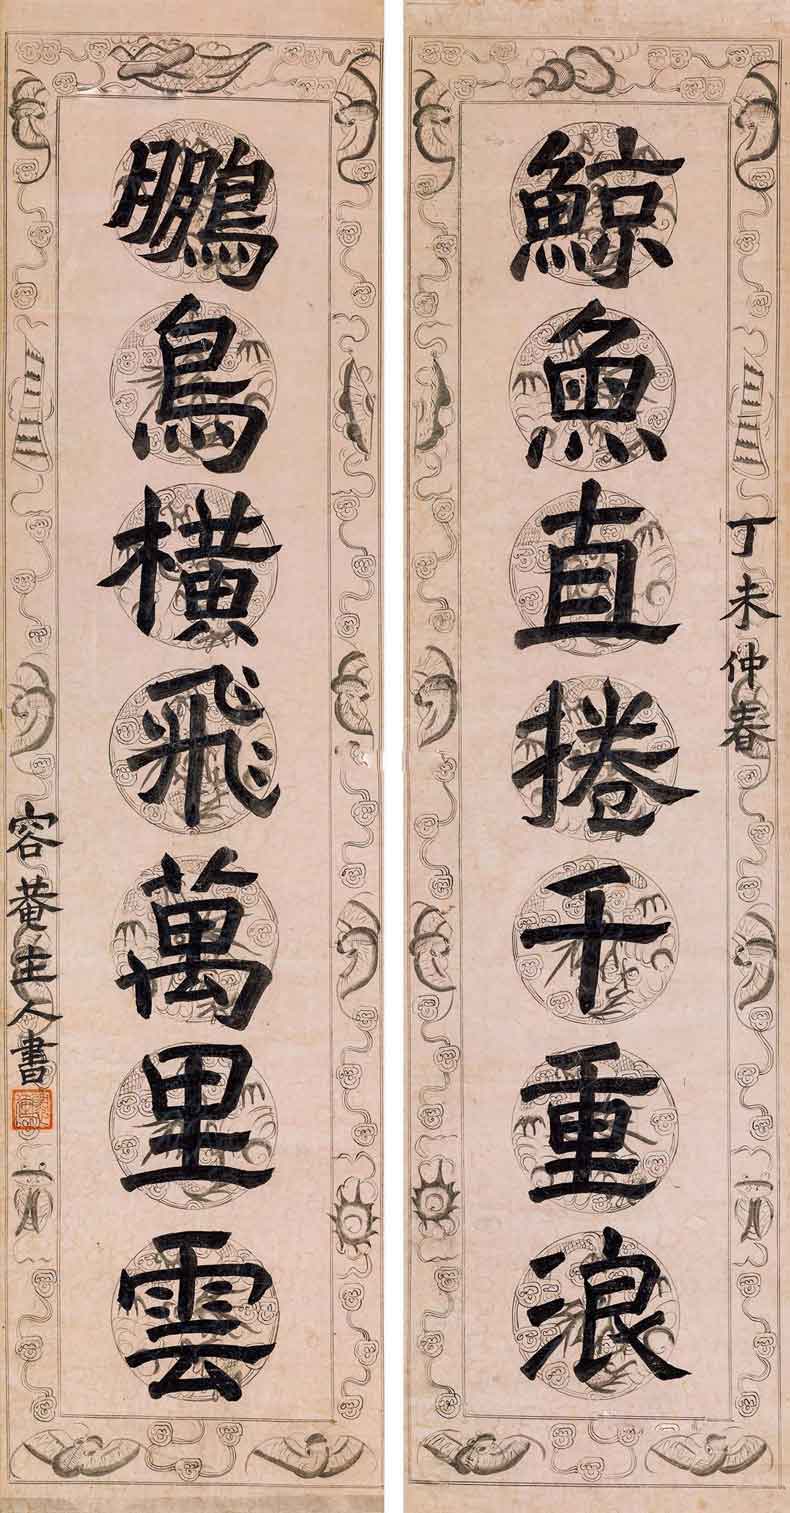 鯨魚直捲千重浪
丁未仲春
鵬鳥橫飛萬里雲
容菴主人書